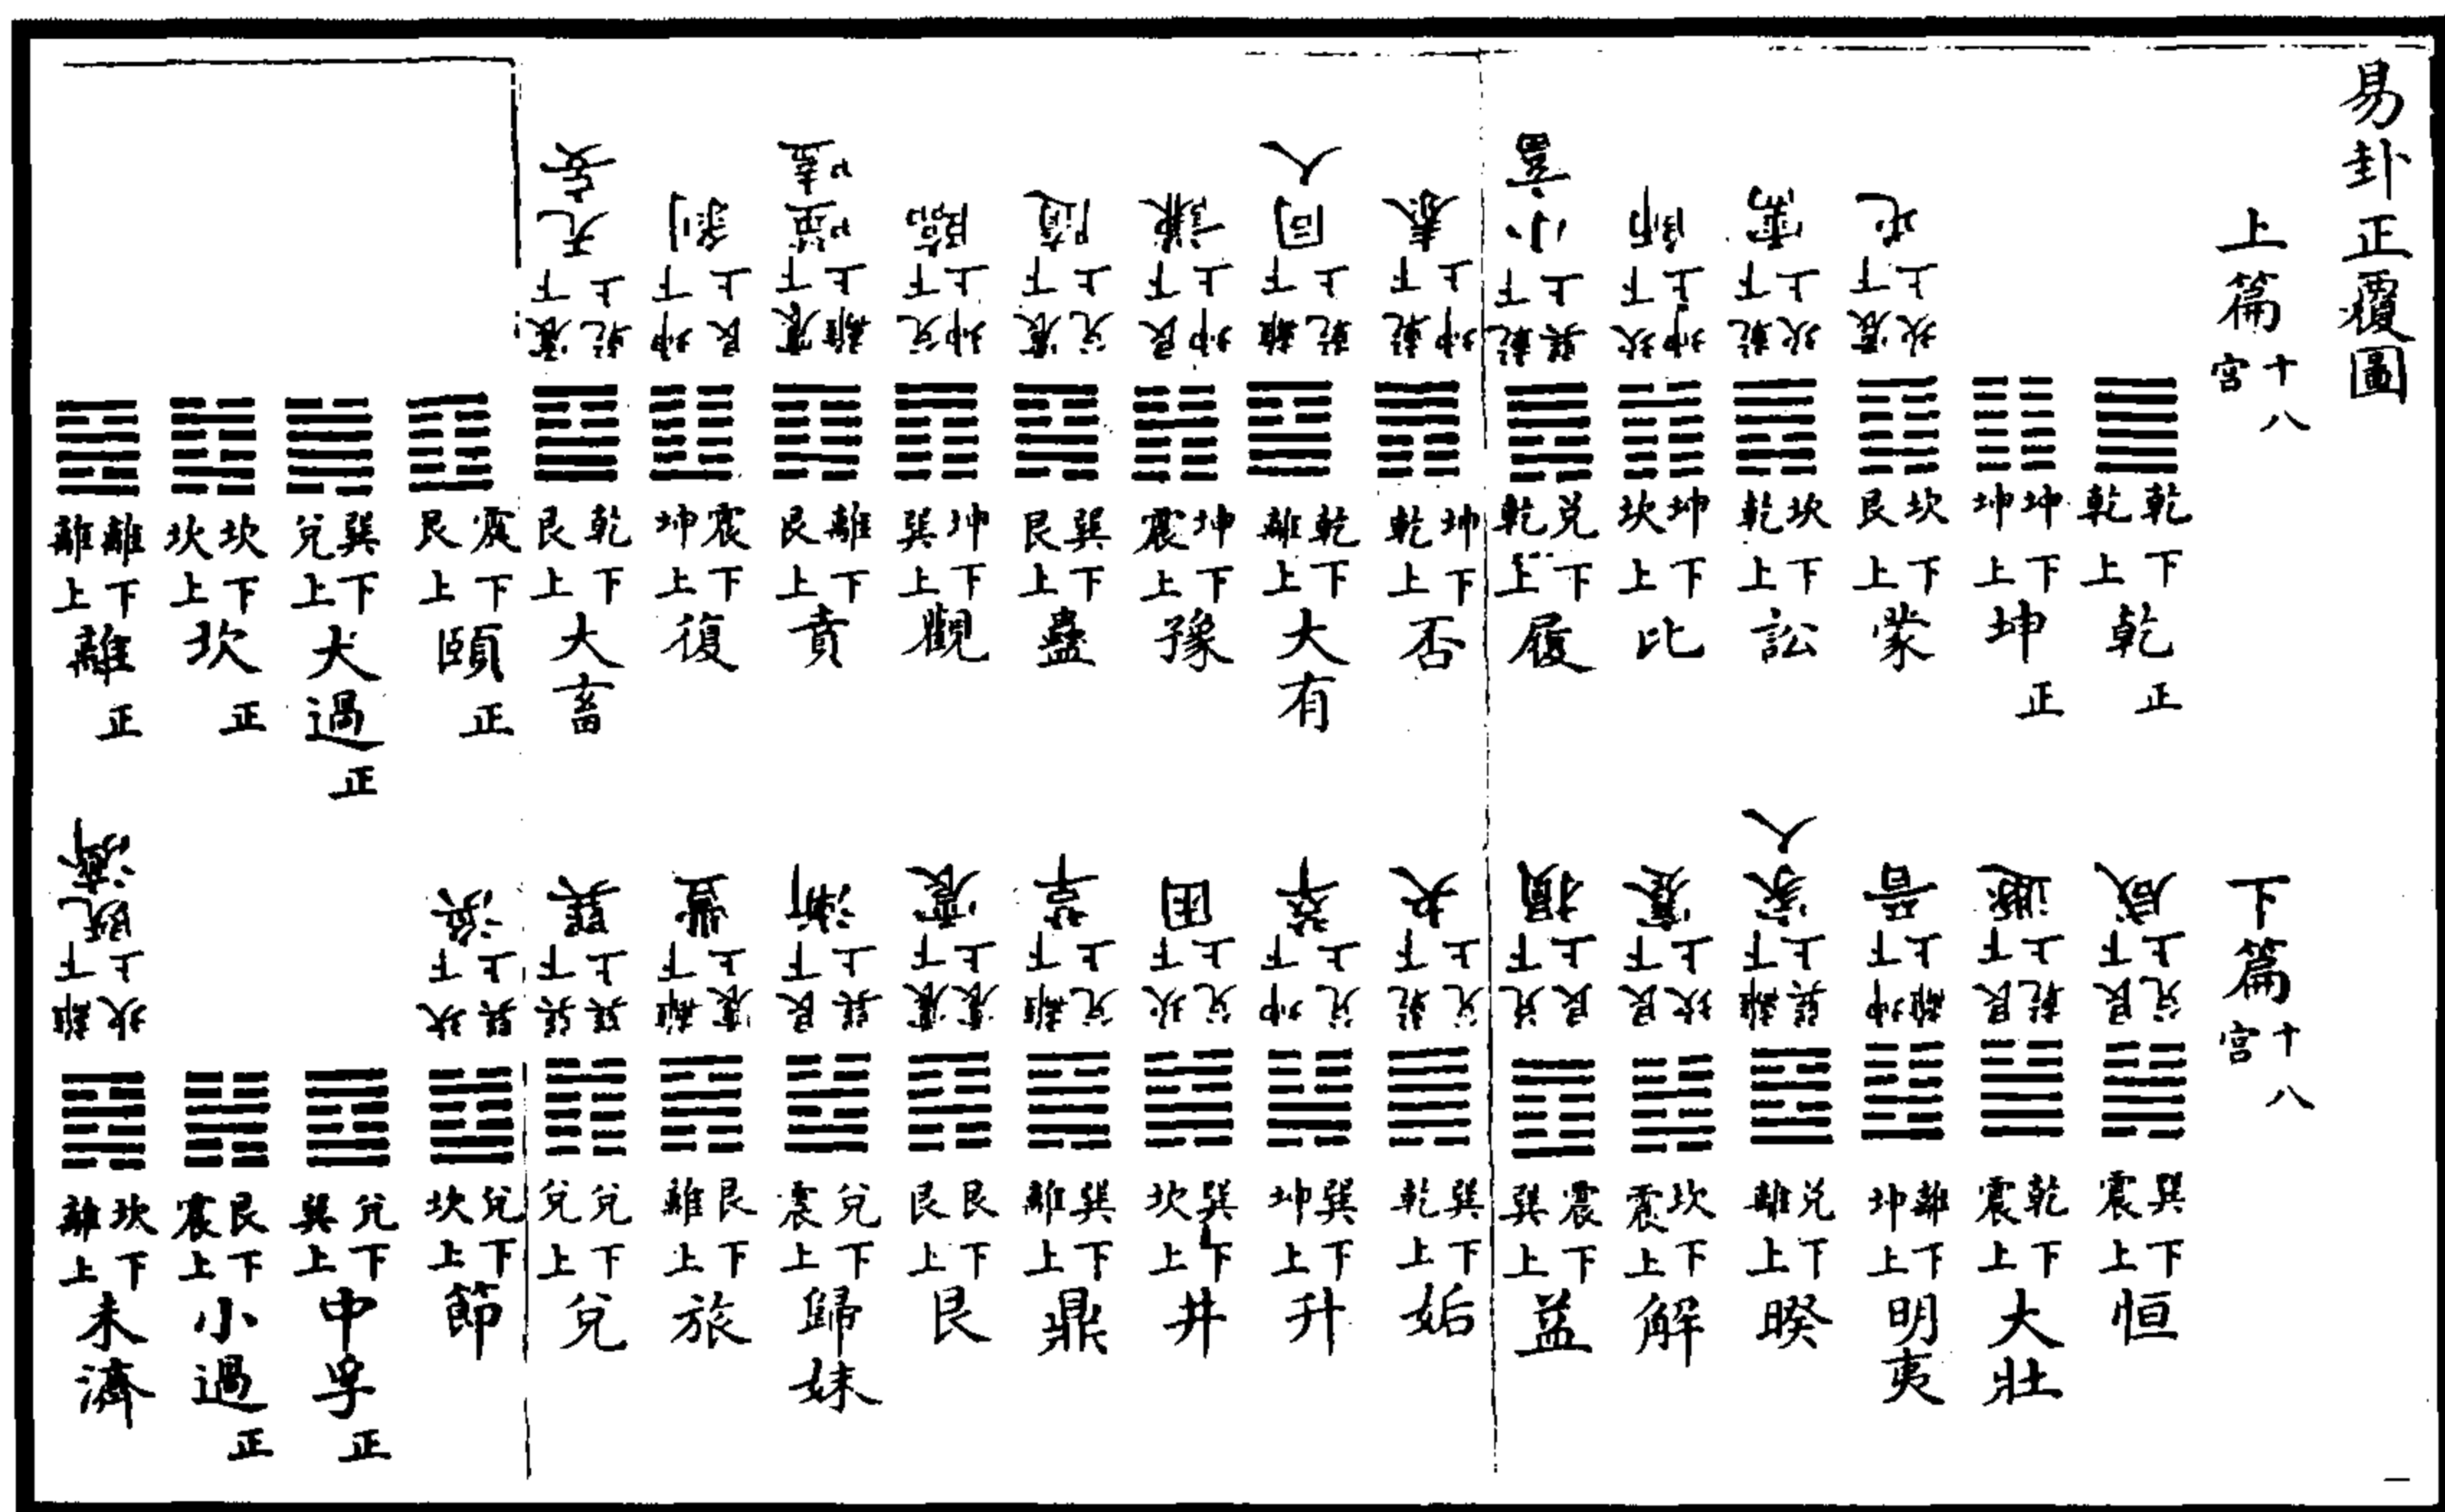 易卦正覆圖
上篇十八宮
乾下乾上乾正
坤下坤上坤正
震下坎上屯
坎下艮上蒙
乾下坎上需
坎下乾上訟
坎下坤上師
坤下坎上比
乾下巽上小畜
兌下乾上履
乾下坤上泰
坤下乾上否
離下乾上同人
乾下離上大有
艮下坤上謙
坤下震上豫
震下兌上隨
巽下艮上蠱
兌下坤上臨
坤下巽上觀
震下離上噬嗑
離下艮上賁
坤下艮上剝
震下坤上復
震下乾上无妄
乾下艮上大畜
震下艮上頤正
巽下兌上大過正
坎下坎上坎正
離下離上離正
下篇十八宮
艮下兌上咸
巽下震上恒
艮下乾上遯
乾下震上大壯
坤下離上晉
離下坤上明夷
離下巽上家人
兌下離上暌
艮下坎上蹇
坎下震上解
兌下艮上損
震下巽上益
乾下兌上夬
巽下乾上姤
坤下兌上萃
巽下坤上升
坎下兌上困
巽下坎上井
離下兌上革
巽下離上鼎
震下震上震
艮下艮上艮
艮下巽上漸
兌下震上歸妹
離下震上豐
艮下離上旅
巽下巽上巽
兌下兌上兌
坎下巽上渙
兌下坎上節
兌下巽上中孚正
艮下震上小過正
離下坎上既濟
坎下離上未濟
一